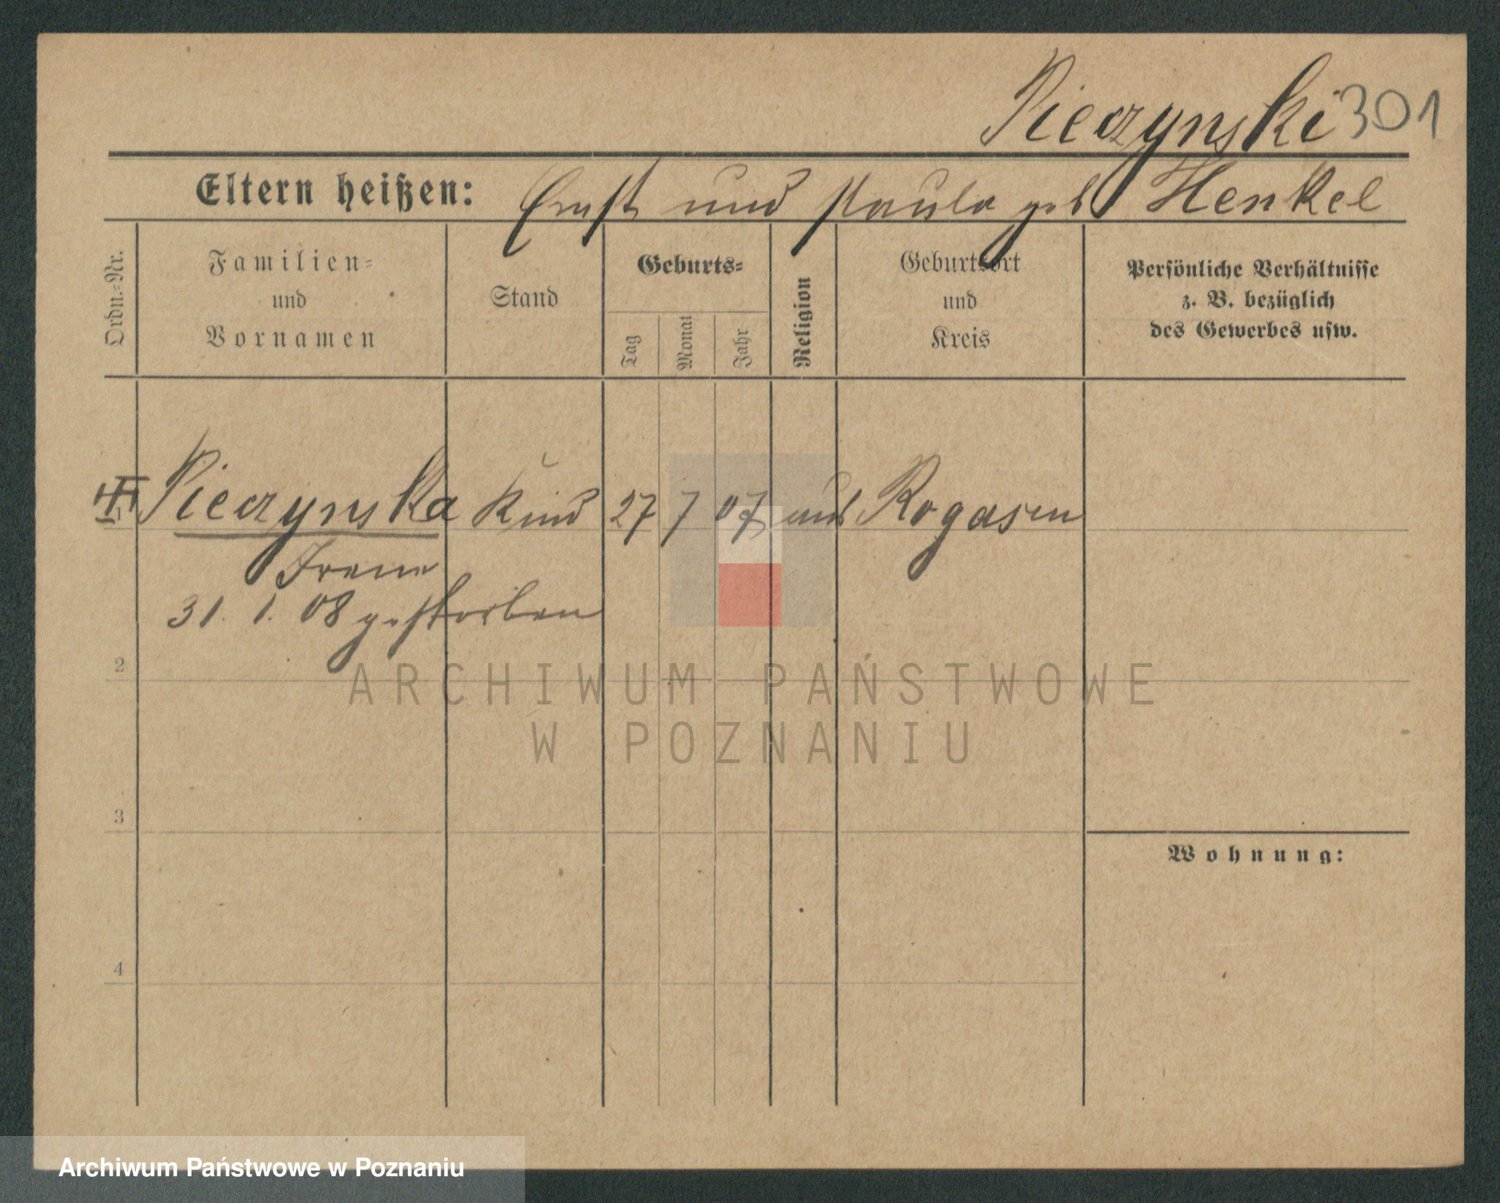 Pieczynski 301
Eltern heißen: Ernst und Paula geb Henkel
Ordn.-Nr.
Familien-
und
Vornamen
Stand
Geburts-
Tag
Monat
Jahr
Religion
Geburtsort
und
Kreis
Persönliche Verhältnisse
z. B. bezüglich
des Gewerbes usw.
Pieczynska Kind 27 7 07 Rogasen
Irene
31. 1. 08 gestorben
2
ARCHIWUM PAŃSTWOWE
W POZNANIU
3
Wohnung:
4
Archiwum Państwowe w Poznaniu